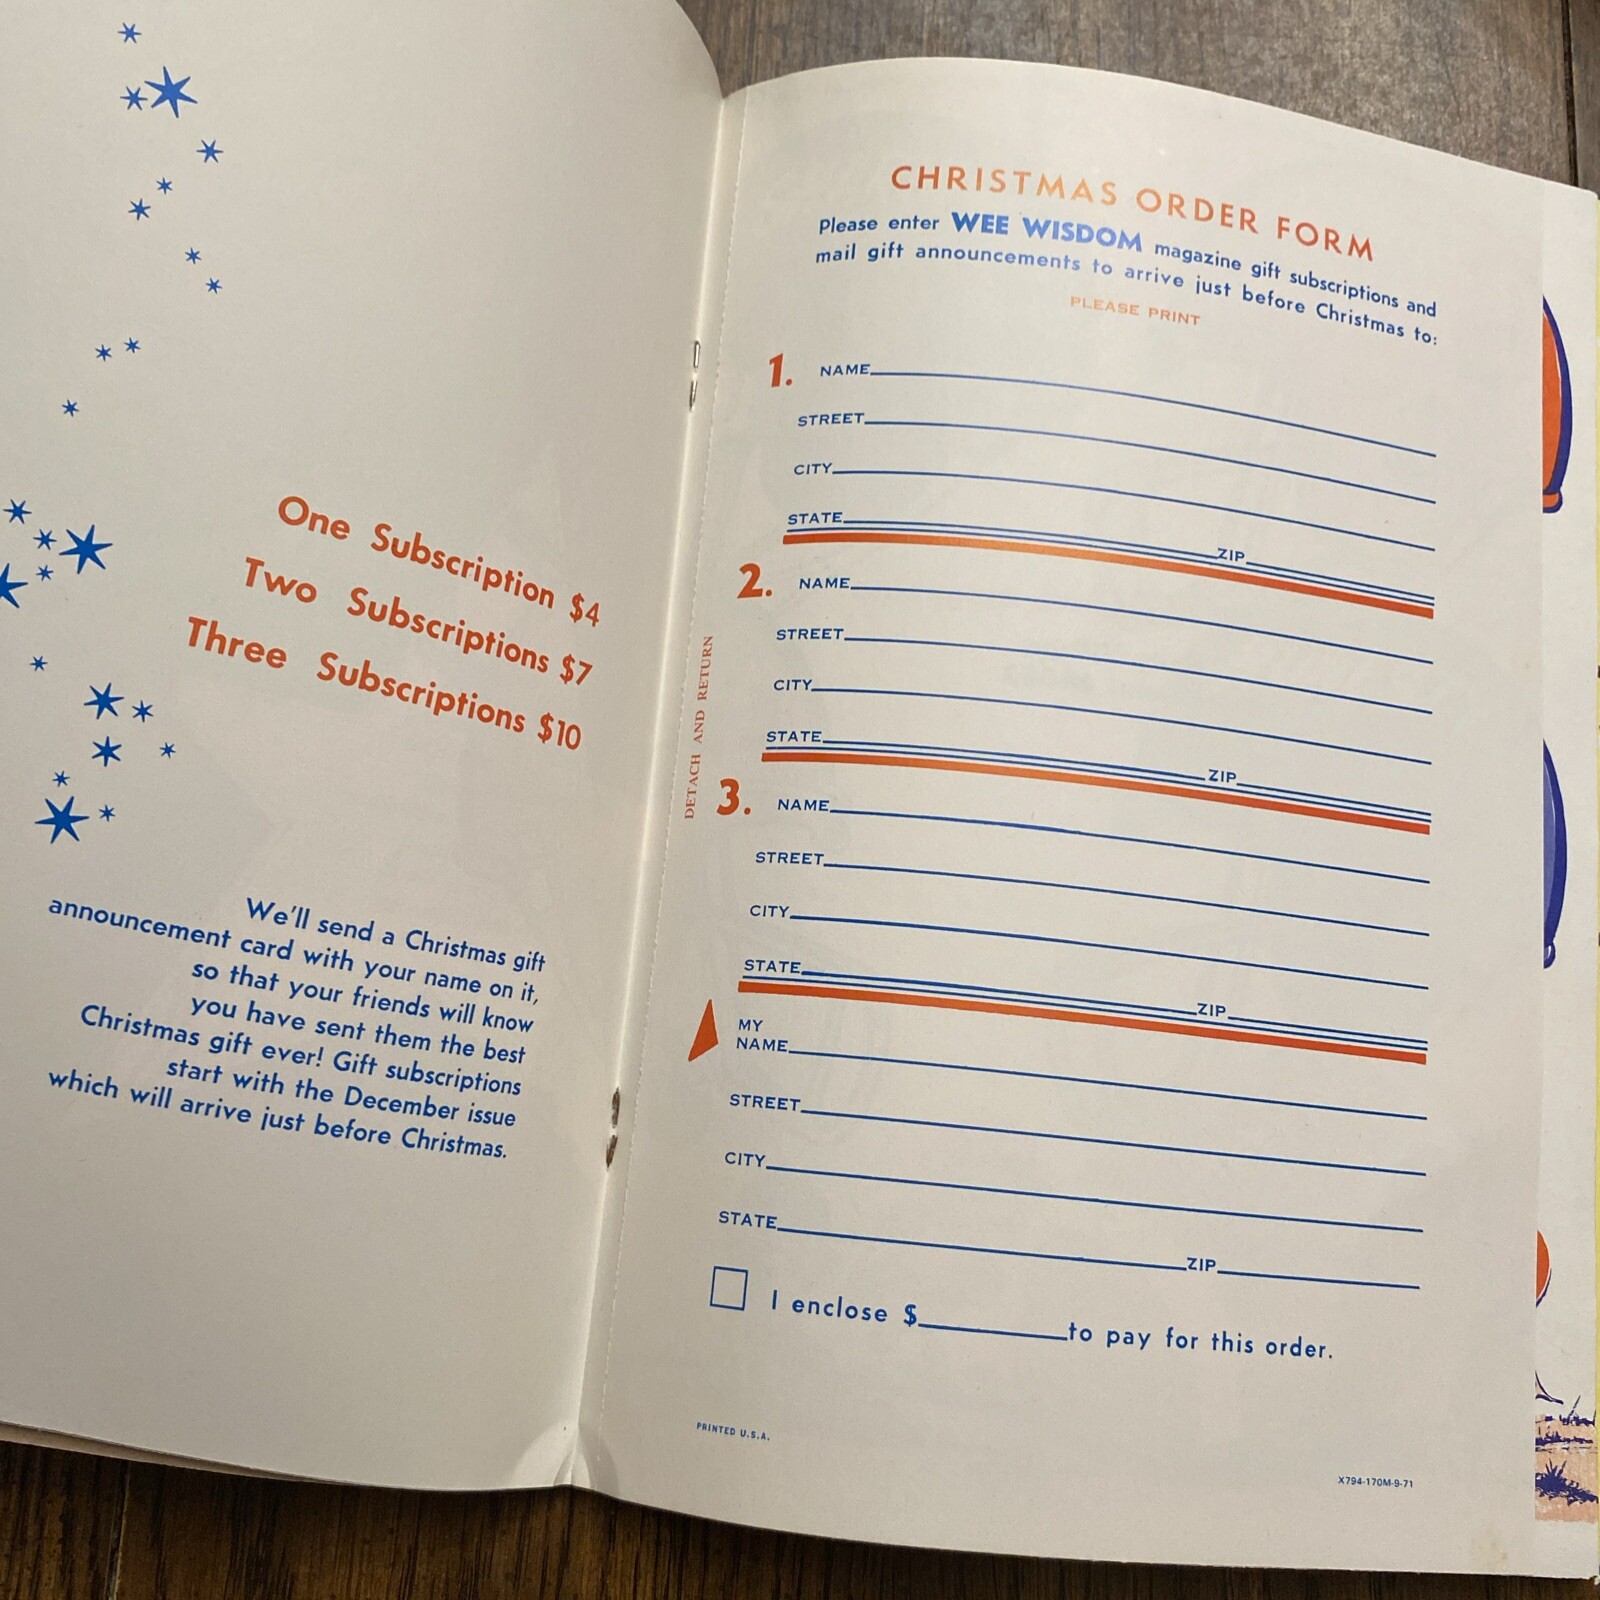 One Subscription $4
Two Subscriptions $7
Three Subscriptions $10
We'll send a Christmas gift
announcement card with your name on it,
so that your friends will know
you have sent them the best
Christmas gift ever! Gift subscriptions
start with the December issue
which will arrive just before Christmas.
DETACH AND RETURN
CHRISTMAS ORDER FORM
Please enter WEE WISDOM magazine gift subscriptions and
mail gift announcements to arrive just before Christmas to:
PLEASE PRINT
1. NAME
STREET
CITY
STATE ZIP
2. NAME
STREET
CITY
STATE ZIP
3. NAME
STREET
CITY
STATE ZIP
MY
NAME
STREET
CITY
STATE ZIP
I enclose $ to pay for this order.
PRINTED U.S.A.
X794-170M-9-71